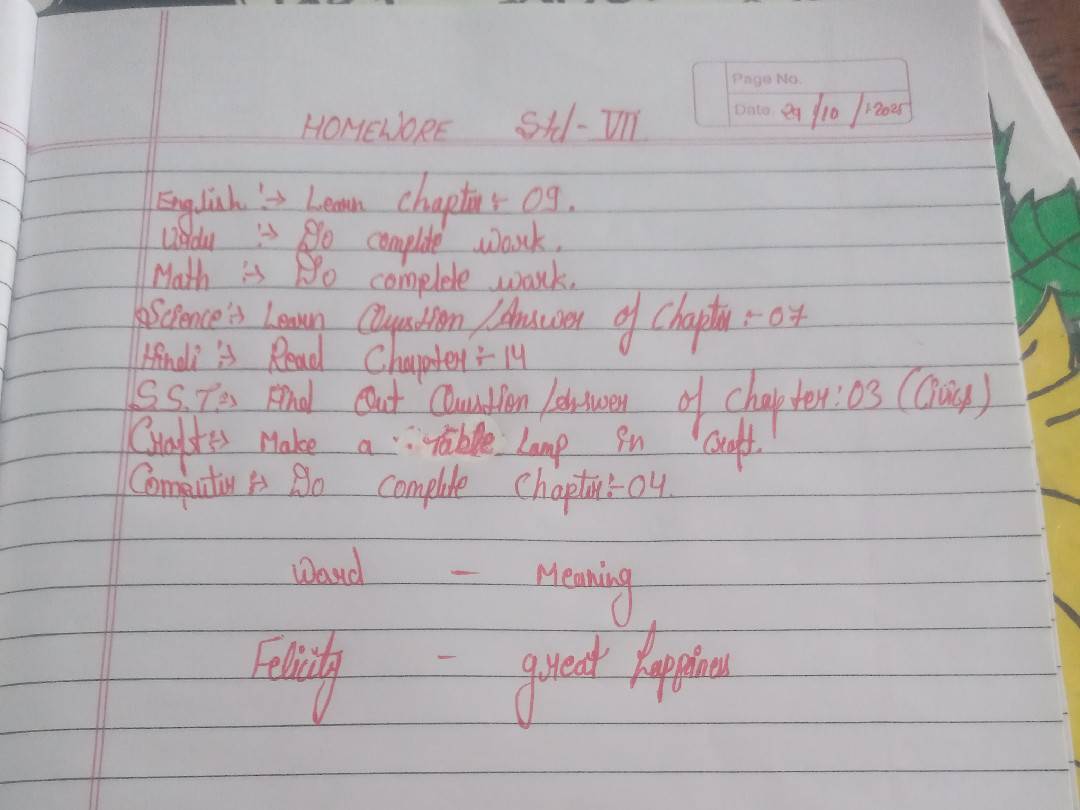 Page No.
Date. 29/10/2025
HOMEWORE Std - VII
English :→ Learn Chapter :- 09.
Urdu :→ Do complete work.
Math :→ Do complete work.
Science :→ Learn Question/Answer of Chapter :- 07
Hindi :→ Read Chapter :- 14
S.S.T :→ Find Out Question/Answer of Chapter : 03 (Civics)
Craft :→ Make a Table Lamp in Craft.
Computer :→ Do complete Chapter :- 04.
Word - Meaning
Felicity - great happiness